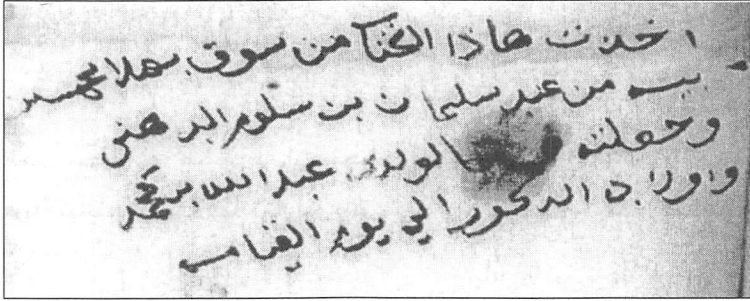 اخذت هاذا الكتا من سوق بهلا بخمسة
بيسه من عبد سليمان بن سلوم
وجعلته لولدي عبد الله بن محمد
واولاده الدكور الي يوم القيامه